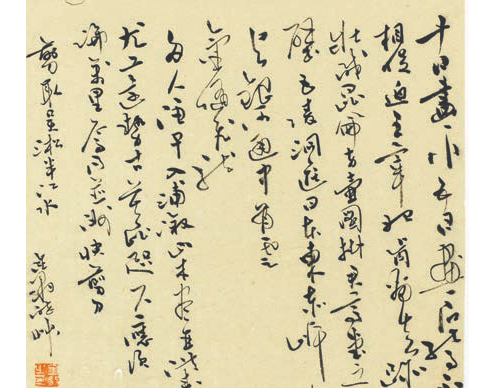 十日畫一水五日畫一石能事
相促迫王宰始肯留真跡
壯哉崑崙方壺圖掛君高堂之
壁巴陵洞庭日本東赤岸
水與銀河通中有雲
氣隨飛龍
舟人漁子入浦漵山木盡亞洪濤
尤工遠勢古莫比咫尺應須
論萬里焉得並州快剪刀
剪取吳淞半江水